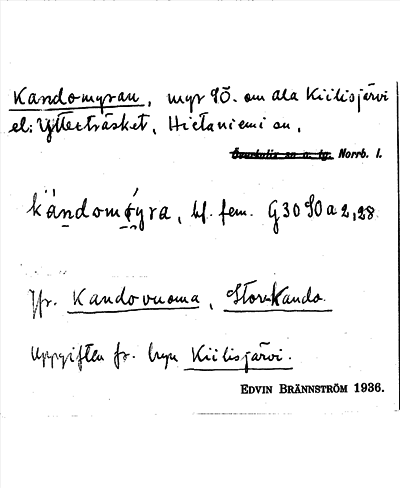 Kandomyran, myr SÖ. om Ala Kiilisjärvi
el. Ytterträsket, Hietaniemi sn,
Överkalix sn o. tg. Norrb. l.
kändomýra, bf. fem. G30 SO a 2, 28
Jfr. Kandovuoma, Stor-Kando.
Uppgiften fr. byn Kiilisjärvi.
EDVIN BRÄNNSTRÖM 1936.